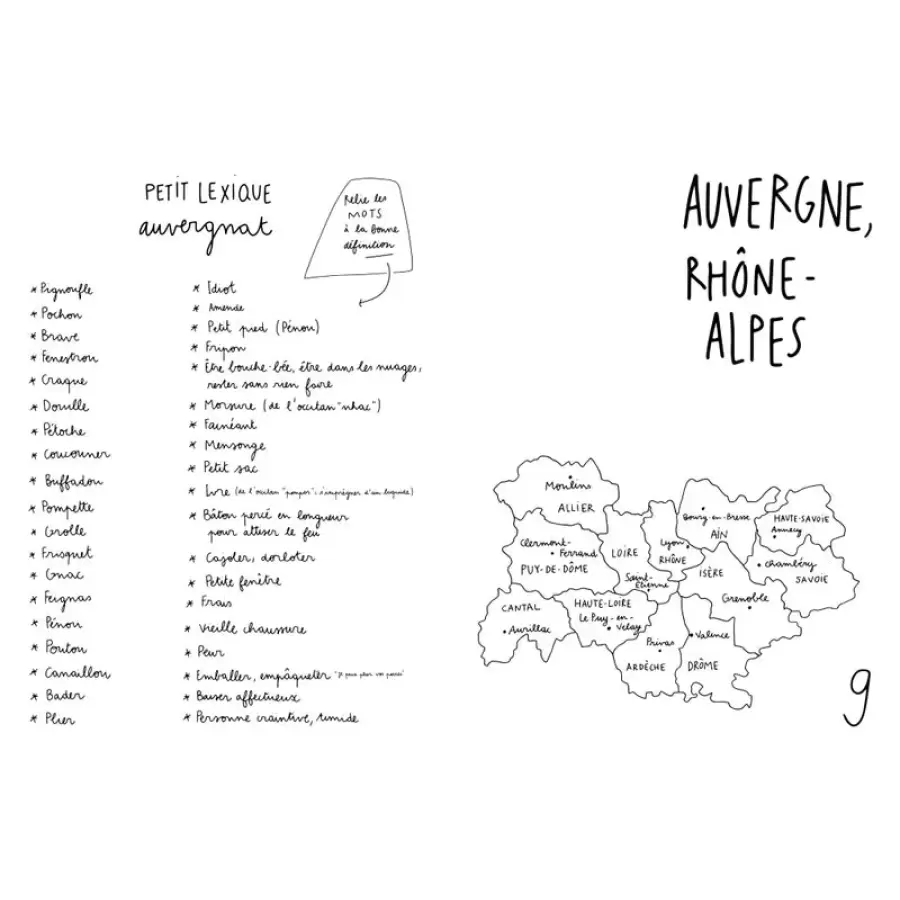 PETIT LEXIQUE
auvergnat
Relie les
MOTS
à la bonne
définition
* Pignoufle
* Pochon
* Brave
* Fenestrou
* Craque
* Douille
* Pétoche
* Coucouner
* Buffadou
* Pompette
* Grolle
* Frisquet
* Gnac
* Feignas
* Pénou
* Poutou
* Canaillou
* Bader
* Plier
* Idiot
* Amende
* Petit pied (Pénou)
* Fripon
* Être bouche-bée, être dans les nuages,
rester sans rien faire
* Morsure (de l'occitan "nhac")
* Fainéant
* Mensonge
* Petit sac
* Ivre (de l'occitan "pompar": s'imprégner d'un liquide)
* Bâton percé en longueur
pour attiser le feu
* Cajoler, dorloter
* Petite fenêtre
* Frais
* Vieille chaussure
* Peur
* Emballer, empâqueter "Je peux plier vos poires"
* Baiser affectueux
* Personne craintive, timide
AUVERGNE,
RHÔNE-
ALPES
Moulins
ALLIER
Clermont-
Ferrand
PUY-DE-DÔME
LOIRE
Saint-
Etienne
Lyon
RHÔNE
Bourg-en-Bresse
AIN
HAUTE-SAVOIE
Annecy
Chambéry
SAVOIE
ISÈRE
Grenoble
CANTAL
Aurillac
HAUTE-LOIRE
Le Puy-en-
Velay
Privas
ARDÈCHE
Valence
DRÔME
9